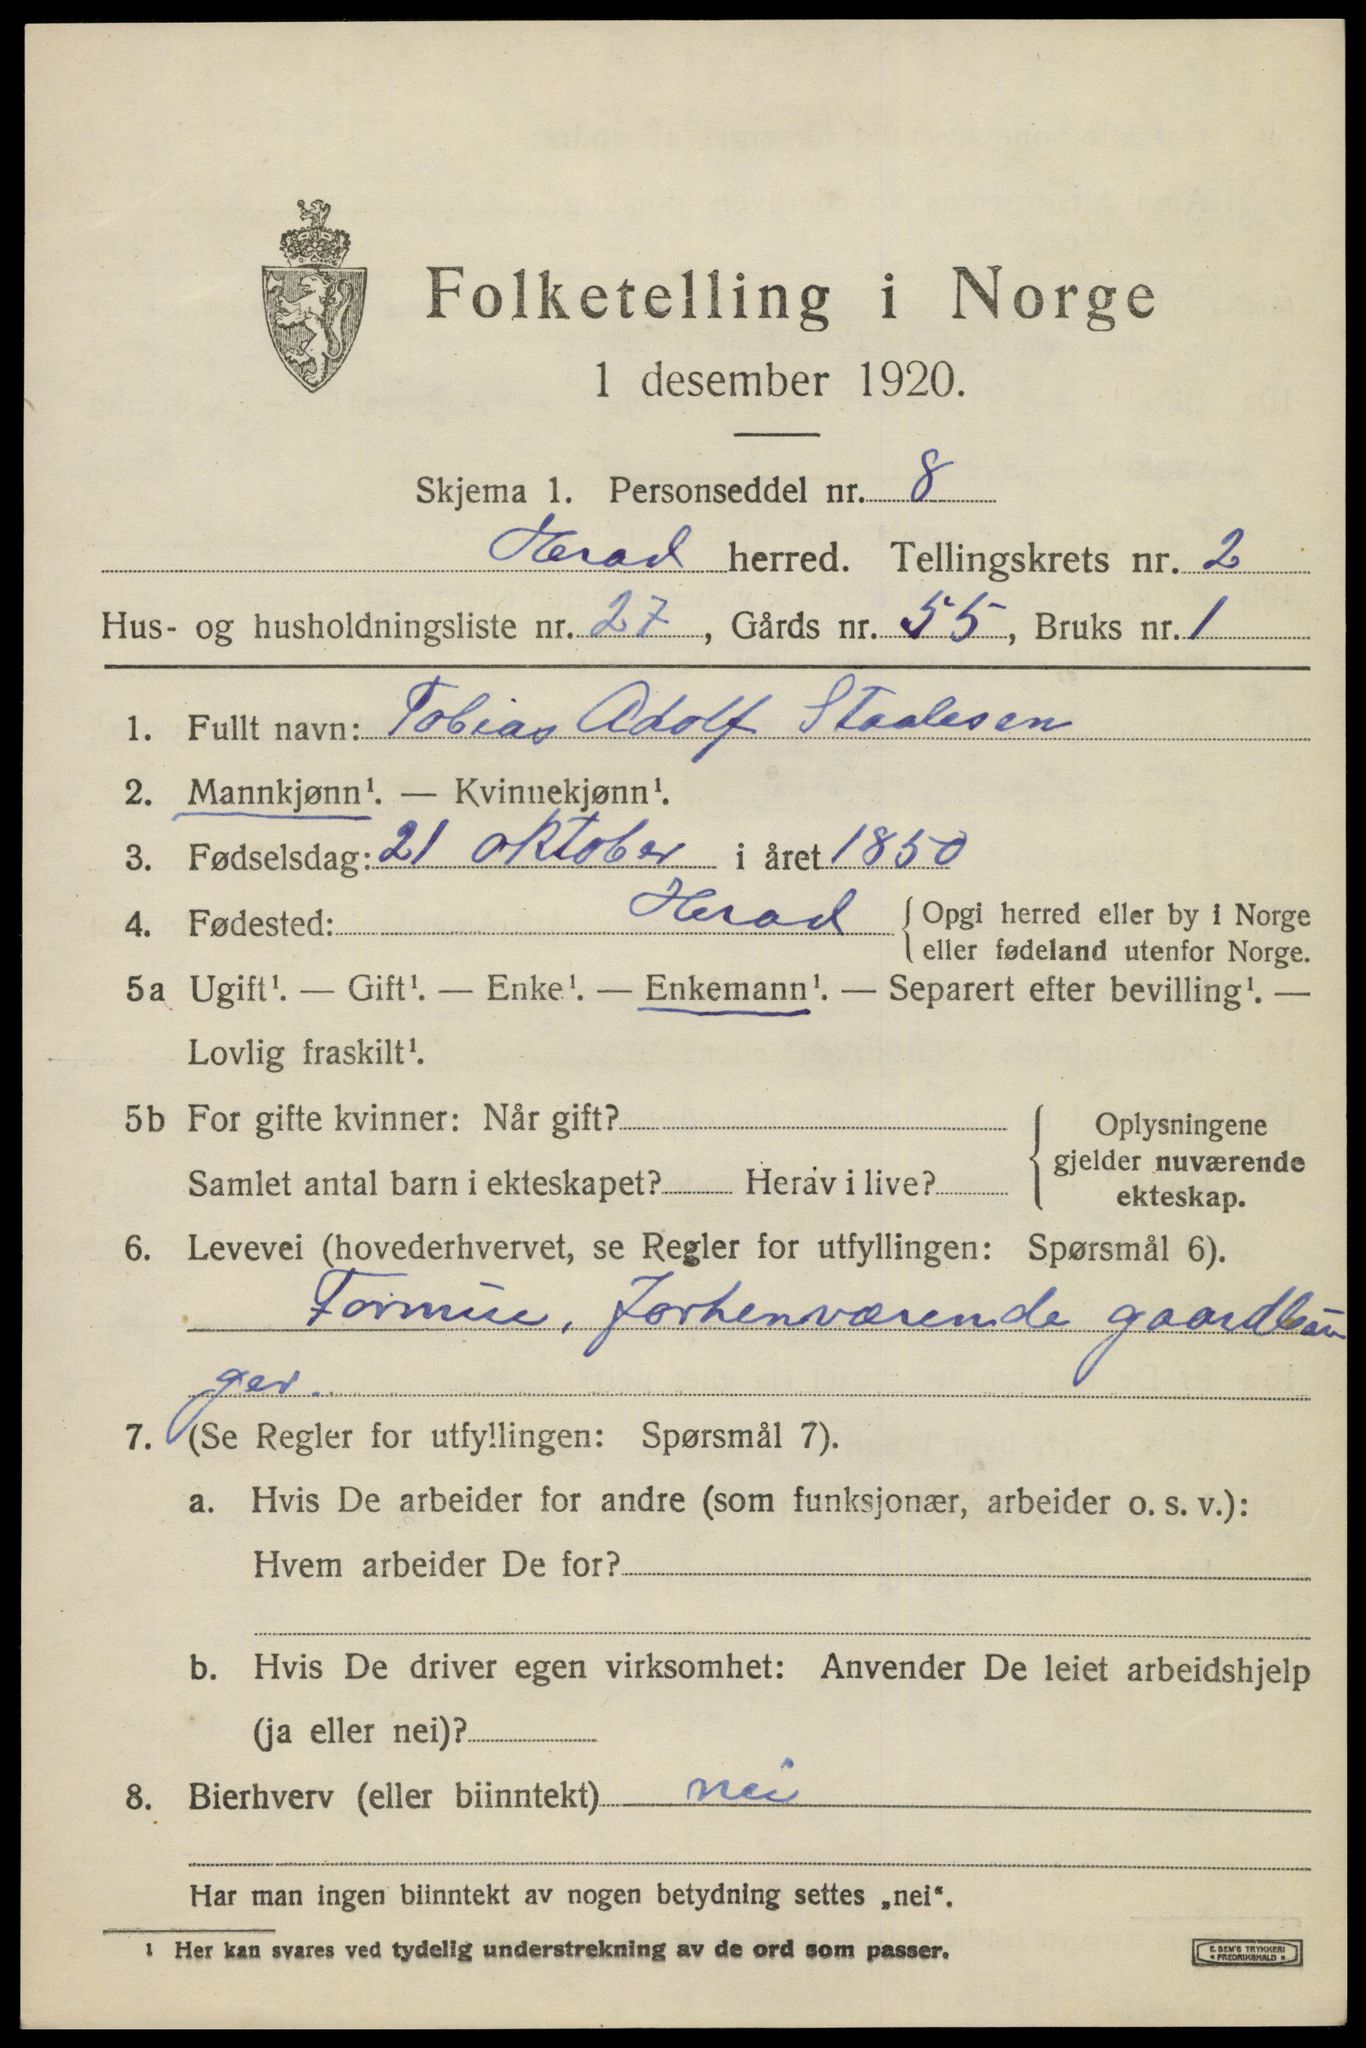 Folketelling i Norge
1 desember 1920.
Skjema 1. Personseddel nr. 8
Herad herred. Tellingskrets nr. 2
Hus- og husholdningsliste nr. 27, Gårds nr. 55, Bruks nr. 1
1. Fullt navn: Tobias Adolf Staalesen
2. Mannkjønn¹. — Kvinnekjønn¹.
3. Fødselsdag: 21 oktober i året 1850
4. Fødested: Herad { Opgi herred eller by i Norge
eller fødeland utenfor Norge.
5a Ugift¹. — Gift¹. — Enke¹. — Enkemann¹. — Separert efter bevilling¹. —
Lovlig fraskilt¹.
5b For gifte kvinner: Når gift?
Samlet antal barn i ekteskapet? Herav i live?
{ Oplysningene
gjelder nuværende
ekteskap.
6. Levevei (hovederhvervet, se Regler for utfyllingen: Spørsmål 6).
Formue, forhenværende gaardbru
ger.
7. (Se Regler for utfyllingen: Spørsmål 7).
a. Hvis De arbeider for andre (som funksjonær, arbeider o. s. v.):
Hvem arbeider De for?
b. Hvis De driver egen virksomhet: Anvender De leiet arbeidshjelp
(ja eller nei)?
8. Bierhverv (eller biinntekt) nei
Har man ingen biinntekt av nogen betydning settes „nei“.
1 Her kan svares ved tydelig understrekning av de ord som passer.
E. SEM'S TRYKKERI
FREDRIKSHALD